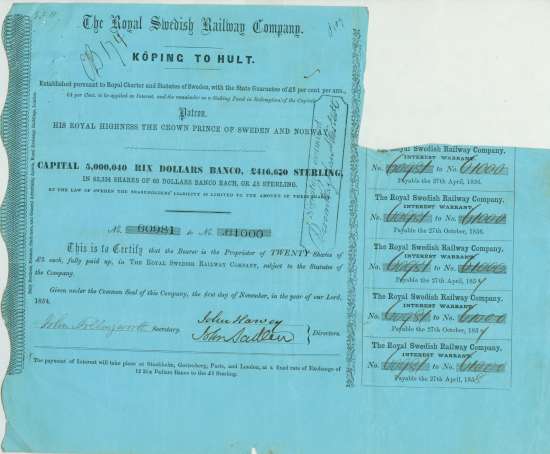 The Royal Swedish Railway Company.
KÖPING TO HULT.
Established pursuant to Royal Charter and Statutes of Sweden, with the State Guarantee of £5 per cent. per ann.,
£4 per Cent. to be applied as Interest, and the remainder as a Sinking Fund in Redemption of the Capital.
Patron.
HIS ROYAL HIGHNESS THE CROWN PRINCE OF SWEDEN AND NORWAY.
CAPITAL 5,000,040 RIX DOLLARS BANCO, £416,670 STERLING,
IN 83,334 SHARES OF 60 DOLLARS BANCO EACH, OR £5 STERLING.
BY THE LAW OF SWEDEN THE SHAREHOLDERS' LIABILITY IS LIMITED TO THE AMOUNT OF THEIR SHARES.
No. 60981 to No. 61000
This is to Certify that the Bearer is the Proprietor of TWENTY Shares of
£5 each, fully paid up, in THE ROYAL SWEDISH RAILWAY COMPANY, subject to the Statutes of
the Company.
Given under the Common Seal of this Company, the first day of November, in the year of our Lord,
1854.
John Hollingworth Secretary.
John Sadleir
Directors.
The payment of Interest will take place at Stockholm, Gottenberg, Paris, and London, at a fixed rate of Exchange of
12 Rix Dollars Banco to the £1 Sterling.
The Royal Swedish Railway Company.
INTEREST WARRANT.
No. 60981 to No. 61000
Payable the 27th April, 1856.
The Royal Swedish Railway Company.
INTEREST WARRANT.
No. 60981 to No. 61000
Payable the 27th October, 1856.
The Royal Swedish Railway Company.
INTEREST WARRANT.
No. 60981 to No. 61000
Payable the 27th April, 1857
The Royal Swedish Railway Company.
INTEREST WARRANT.
No. 60981 to No. 61000
Payable the 27th October, 1857
The Royal Swedish Railway Company.
INTEREST WARRANT.
No. 60981 to No. 61000
Payable the 27th April, 1858